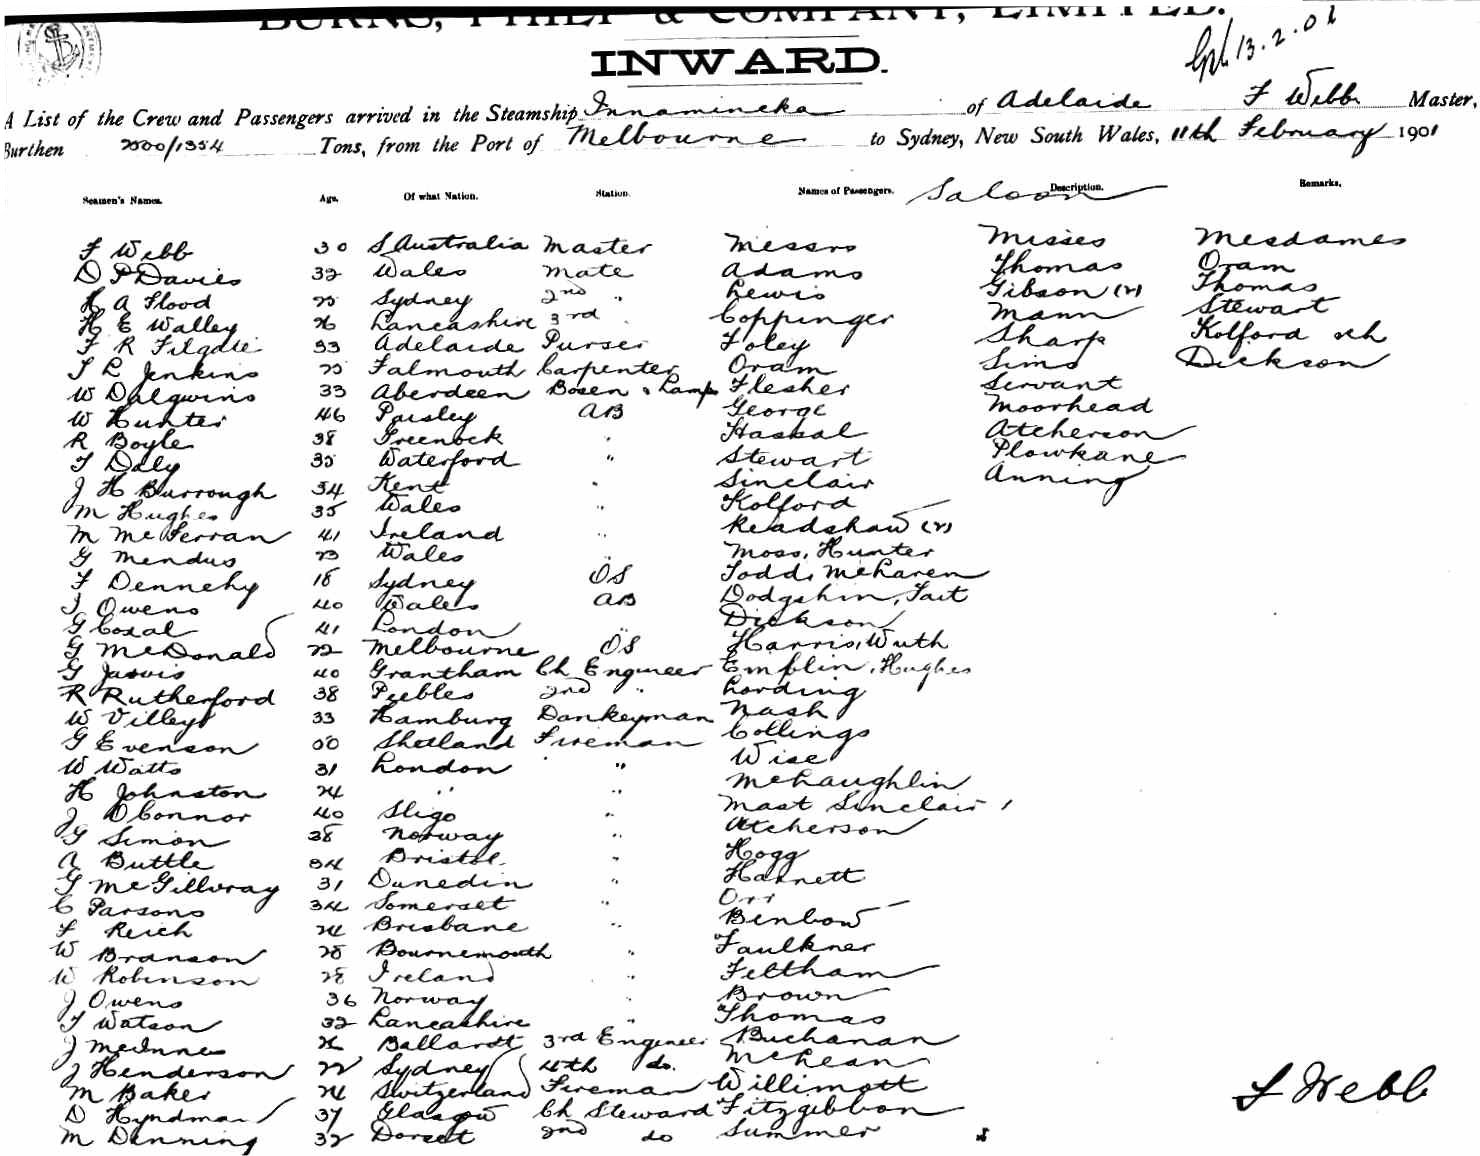 BURNS, PHILP & COMPANY, LIMITED.
INWARD.
13.2.01
A List of the Crew and Passengers arrived in the Steamship Innamincka of Adelaide F Webb Master,
Burthen 2500/1354 Tons, from the Port of Melbourne to Sydney, New South Wales, 11th February 1901
Seamen's Names. Age. Of what Nation. Station. Names of Passengers. Saloon Description. Remarks.
F Webb 30 S Australia Master Messrs Misses Mesdames
D P Davies 32 Wales Mate Adams Thomas Oram
H A Flood 25 Sydney 2nd " Lewis Gibson (2) Thomas
H E Walley 26 Lancashire 3rd " Coppinger Mann Stewart
F R Filgate 33 Adelaide Purser Foley Sharp Kolford
J L Jenkins 25 Falmouth Carpenter Oram Sims Dickson
W Dalgwins 33 Aberdeen Bosen & Lamps Flesher Servant
W Hunter 46 Paisley AB George Moorhead
R Boyle 38 Greenock " Haskal Atcherson
T Daly 35 Waterford " Stewart Plowkane
J H Burrough 34 Kent " Sinclair Anning
M Hughes 35 Wales " Kolford
M McFerran 41 Ireland " Readshaw (2)
G Mendus 23 Wales " Moss, Hunter
F Dennehy 18 Sydney OS Todd, McLaren
J Owens 40 Wales AB Dodgshin, Tait
G Coxal 41 London " Dickson
G McDonald 22 Melbourne OS Harris, Wuth
G Jarvis 40 Grantham Ch Engineer Emplin, Hughes
R Rutherford 38 Peebles 2nd " Lording
W Villeys 33 Hamburg Donkeyman Nash
G Evenson 50 Shetland Fireman Collings
W Watts 31 London " Wise
H Johnston 24 " " McLaughlin
J O'Connor 40 Sligo " Mast Sinclair 1
G Simon 38 Norway " Atcherson
A Buttle 34 Bristol " Hogg
G McGillvray 31 Dunedin " Harnett
C Parsons 34 Somerset " Orr
F Reich 24 Brisbane " Benbow
W Branson 28 Bournemouth " Faulkner
W Robinson 28 Ireland " Feltham
J Owens 36 Norway " Brown
T Watson 32 Lancashire " Thomas
J McInnes 26 Ballardt 3rd Engineer Buchanan
J Henderson 22 Sydney 4th do. McLean
M Baker 24 Switzerland Fireman Willimott
D Hyndman 37 Glasgow Ch Steward Fitzgibbon
M Denning 32 Dorset 2nd do Summer
F Webb